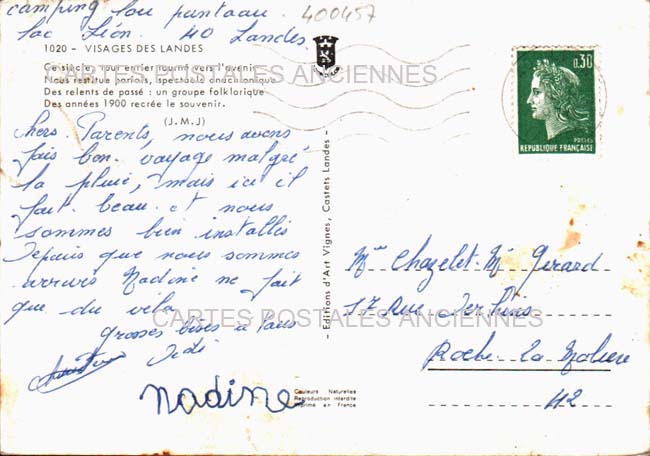 camping lou puntaou
lac Léon. 40 Landes
400457
1020 - VISAGES DES LANDES
Ce siècle, tout entier tourné vers l'avenir
Nous restitue parfois, spectacle anachronique
Des relents de passé : un groupe folklorique
Des années 1900 recrée le souvenir.
(J.M.J)
CARTES POSTALES ANCIENNES
chers Parents, nous avons
fais bon voyage malgré
la pluie, mais ici il
fait beau et nous
sommes bien installés
Depuis que nous sommes
arrivés Nadine ne fait
que du vélo
Grosses bises à tous
Dédé
nadine
- Editions d'Art Vignes, Castets Landes -
Couleurs Naturelles
Reproduction interdite
Imprimé en France
0,30
POSTES
REPUBLIQUE FRANÇAISE
Mme Chazelet Mr Gérard
17 Rue
CARTES POSTALES ANCIENNES
Roche la Molière
42